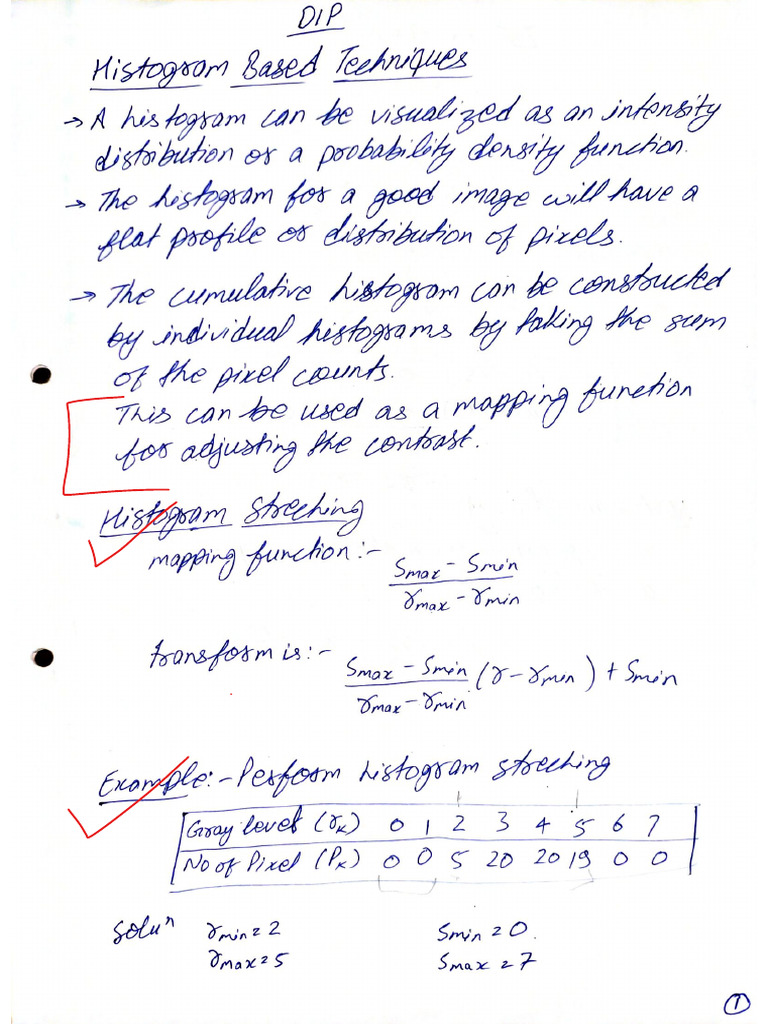 DIP
Histogram Based Techniques
→ A histogram can be visualized as an intensity
distribution or a probability density function.
→ The histogram for a good image will have a
flat profile or distribution of pixels.
→ The cumulative histogram can be constructed
by individual histograms by taking the sum
of the pixel counts.
This can be used as a mapping function
for adjusting the contrast.
Histogram streching
mapping function :- (Smax - Smin) / (rmax - rmin)
transform is :- (Smax - Smin) / (rmax - rmin) (r - rmin) + Smin
Example :- Perform histogram streching
Gray level (rk) 0 1 2 3 4 5 6 7
No of Pixel (Pk) 0 0 5 20 20 19 0 0
Soluⁿ rmin = 2 Smin = 0.
rmax = 5 Smax = 7
1